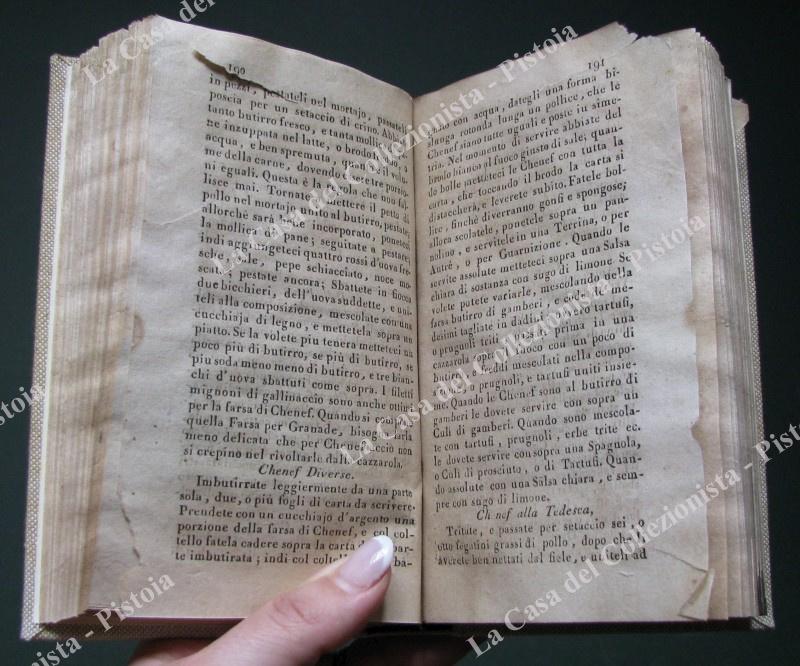 190
in pezzi, pestateli nel mortajo, passateli
poscia per un setaccio di crino. Abbiate
tanto butirro fresco, e tanta mollica di pa-
ne inzuppata nel latte, o brodo, o
acqua, e ben spremuta, quanto è il volu-
me della carne, dovendo essere tre porzio-
ni eguali. Questa è la regola che non fal-
lisce mai. Tornate a mettere il petto di
pollo nel mortajo unito al butirro, pestate,
allorchè sarà bene incorporato, poneteci
la mollica di pane; seguitate a pestare,
indi aggiungeteci quattro rossi d'uova fre-
schi, sale, pepe schiacciato, noce mo-
scata, e pestate ancora; Sbattete in fiocca
due bicchieri, dell'uova suddette, e uni-
teli alla composizione, mescolate con una
cucchiaja di legno, e mettetela sopra un
piatto. Se la volete piu tenera metteteci un
poco più di butirro, se più di butirro, se
piu soda meno meno di butirro, e tre bian-
chi d'uova sbattuti come sopra. I filetti
mignoni di gallinaccio sono anche ottimi
per la farsa di Chenef. Quando si compone
quella Farsa per Granade, bisogna farla
meno delicata che per Chenef, acciò non
si crepino nel rivoltarle dalla cazzarola.
Chenef Diverse.
Imbutirrate leggiermente da una parte
sola, due, o più fogli di carta da scrivere.
Prendete con un cucchiajo d'argento una
porzione della farsa di Chenef, e col col-
tello fatela cadere sopra la carta dalla par-
te imbutirata; indi col coltello ba-
191
gnato con acqua, dategli una forma bi-
slunga rotonda lunga un pollice, che le
Chenef siano tutte uguali e poste in sime-
tria. Nel momento di servire abbiate del
brodo bianco al fuoco giusto di sale; quan-
do bolle metteteci le Chenef con tutta la
carta, che toccando il brodo la carta si
distaccherà, e leverete subito. Fatele bol-
lire, finchè diverranno gonfi e spongose;
allora scolatele, ponetele sopra un pan-
nolino, e servitele in una Terrina, o per
Antrè, o per Guarnizione. Quando le
servite assolute metteteci sopra una Salsa
chiara di sostanza con sugo di limone Se
volete potete variarle, mescolando nella
farsa butirro di gamberi, e code de' me-
desimi tagliate in dadini, o tartufi,
o prugnoli triti passati prima in una
cazzarola sopra il fuoco con un poco di
butirro, e freddi mescolati nella compo-
sizione, o prugnoli, e tartufi uniti insie-
me. Quando le Chenef sono al butirro di
gamberi le dovete servire con sopra un
Culì di gamberi. Quando sono mescola-
te con tartufi, prugnoli, erbe trite ec.
le dovete servire con sopra una Spagnola,
o Culì di prosciutto, o di Tartufi. Quan-
do assolute con una Salsa chiara, e sem-
pre con sugo di limone.
Ch nef alla Tedesca,
Tritate, e passate per setaccio sei, o
otto fegatini grassi di pollo, dopo che li
averete ben nettati dal fiele, e uniteli ad
La Casa del Collezionista - Pistoia
La Casa del Collezionista - Pistoia
La Casa del Collezionista - Pistoia
La Casa del Collezionista - Pistoia
La Casa del Collezionista - Pistoia